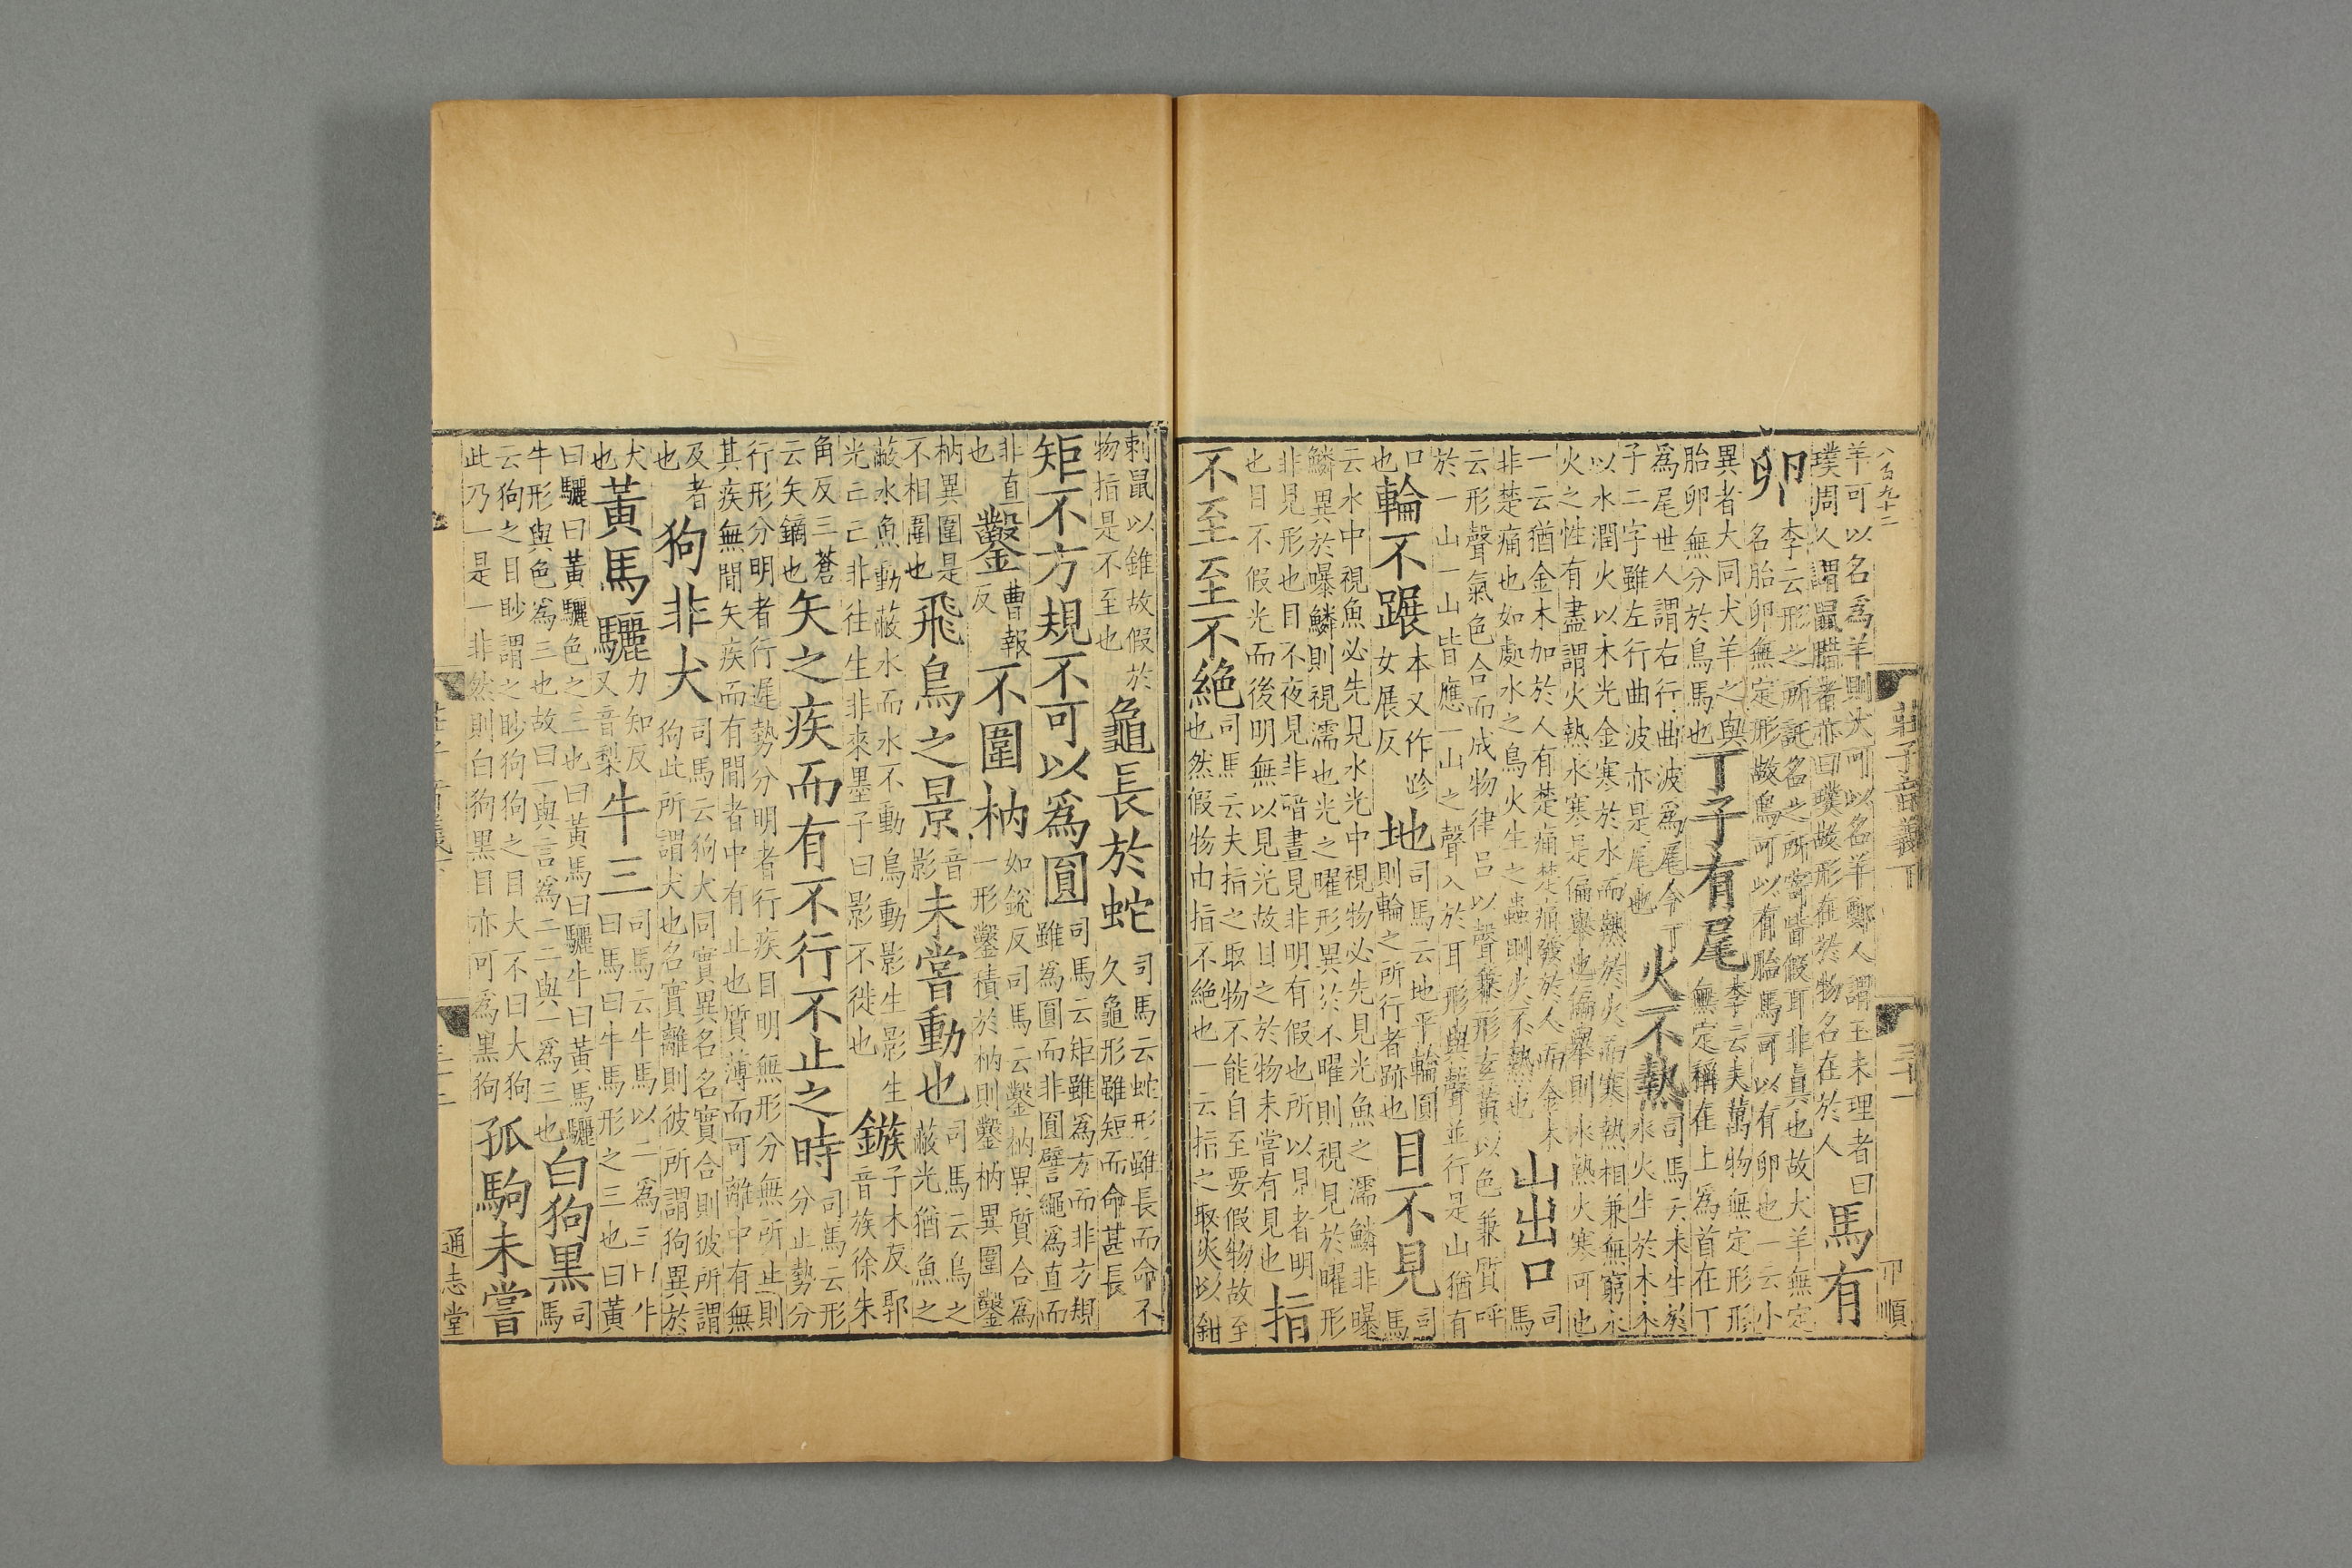 八百九十二 莊子音義下 三十一 卩順
羊可以名爲羊則犬可以名羊鄭人謂玉未理者曰璞周人謂鼠腊者亦曰璞故形在於物名在於人馬有
卵李云形之所託名之所寄皆假耳非真也故犬羊無定名胎卵無定形故鳥可以有胎馬可以有卵也一云小
異者大同犬羊之與胎卵無分於鳥馬也丁子有尾李云夫萬物無定形形無定稱在上爲首在丁
爲尾世人謂右行曲波爲尾今丁子二字雖左行曲波亦是尾也火不熱司馬云木生於水火生於木木
以水潤火以木光金寒於水而熱於火而寒熱相兼無窮水火之性有盡謂火熱水寒是偏舉也偏舉則水熱火寒可也
一云猶金木加於人有楚痛楚痛發於人而金木非楚痛也如處水之鳥火生之蟲則火不熱也山出口司馬
云形聲氣色合而成物律呂以聲兼形玄黃以色兼質呼於一山一山皆應一山之聲入於耳形與聲並行是山猶有
口也輪不蹍本又作跈女展反地司馬云地平輪圓則輪之所行者跡也目不見司馬
云水中視魚必先見水光中視物必先見光魚之濡鱗非曝鱗異於曝鱗則視濡也光之曜形異於不曜則視見於曜形
非見形也目不夜見非暗晝見非明有假也所以見者明也目不假光而後明無以見光故目之於物未嘗有見也指
不至至不絶司馬云夫指之取物不能自至要假物故至也然假物由指不絶也一云指之取火以鉗
刺鼠以錐故假於物指是不至也龜長於蛇司馬云蛇形雖長而命不久龜形雖短而命甚長
矩不方規不可以爲圓司馬云矩雖爲方而非方規雖爲圓而非圓譬繩爲直而
非直也鑿曹報反不圍枘如銳反司馬云鑿枘異質合爲一形鑿積於枘則鑿枘異圍鑿
枘異圍是不相圍也飛鳥之景音影未嘗動也司馬云鳥之蔽光猶魚之
蔽水魚動蔽水而水不動鳥動影生影生光亡亡非往生非來墨子曰影不徙也鏃子木反郭音族徐朱
角反三蒼云矢鏑也矢之疾而有不行不止之時司馬云形分止勢分
行形分明者行遲勢分明者行疾目明無形分無所止則其疾無間矢疾而有間者中有止也質薄而可離中有無
及者也狗非犬司馬云狗犬同實異名名實合則彼所謂狗此所謂犬也名實離則彼所謂狗異於
犬也黃馬驪力知反又音梨牛三司馬云牛馬以二爲三曰牛曰馬曰牛馬形之三也曰黃
曰驪曰黃驪色之三也曰黃馬曰驪牛曰黃馬驪牛形與色爲三也故曰一與言爲二二與一爲三也白狗黑司馬
云狗之目眇謂之眇狗狗之目大不曰大狗此乃一是一非然則白狗黑目亦可爲黑狗孤駒未嘗
通志堂